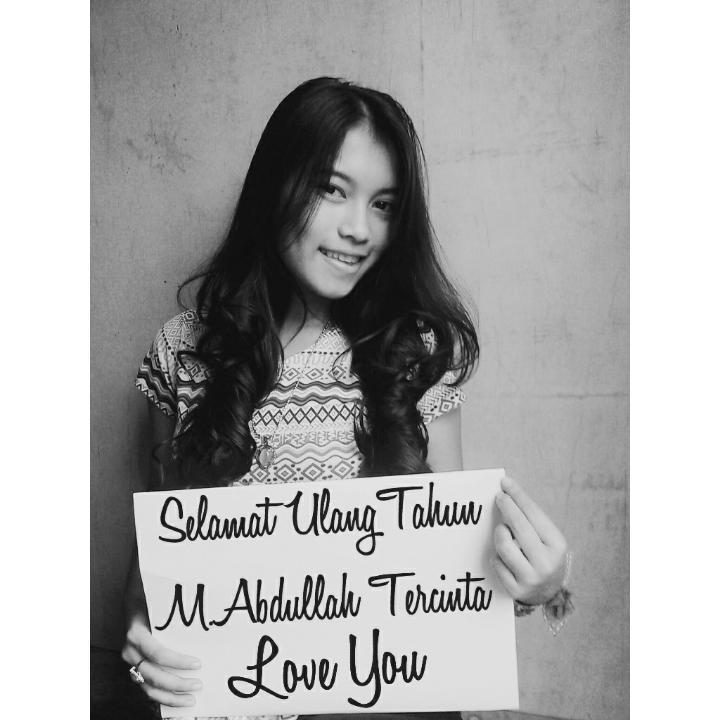 Selamat Ulang Tahun
M.Abdullah Tercinta
Love You